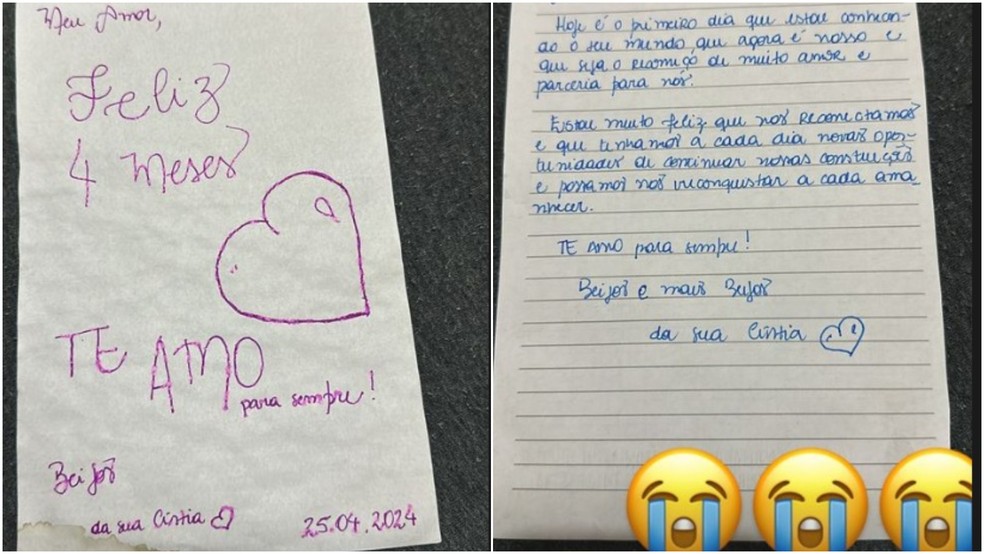 Meu Amor,
Feliz
4 meses
TE AMO
para sempre!
Beijos
da sua Cíntia
25.04.2024
Hoje é o primeiro dia que estou conhecen-
do o seu mundo, que agora é nosso e
que seja o recomeço de muito amor e
parceria para nós!
Estou muito feliz que nos reconectamos
e que tenhamos a cada dia novas opor-
tunidades de continuar nossas construções
e possamos nos reconquistar a cada ama-
nhecer.
TE AMO para sempre!
Beijos e mais Beijos
da sua Cíntia